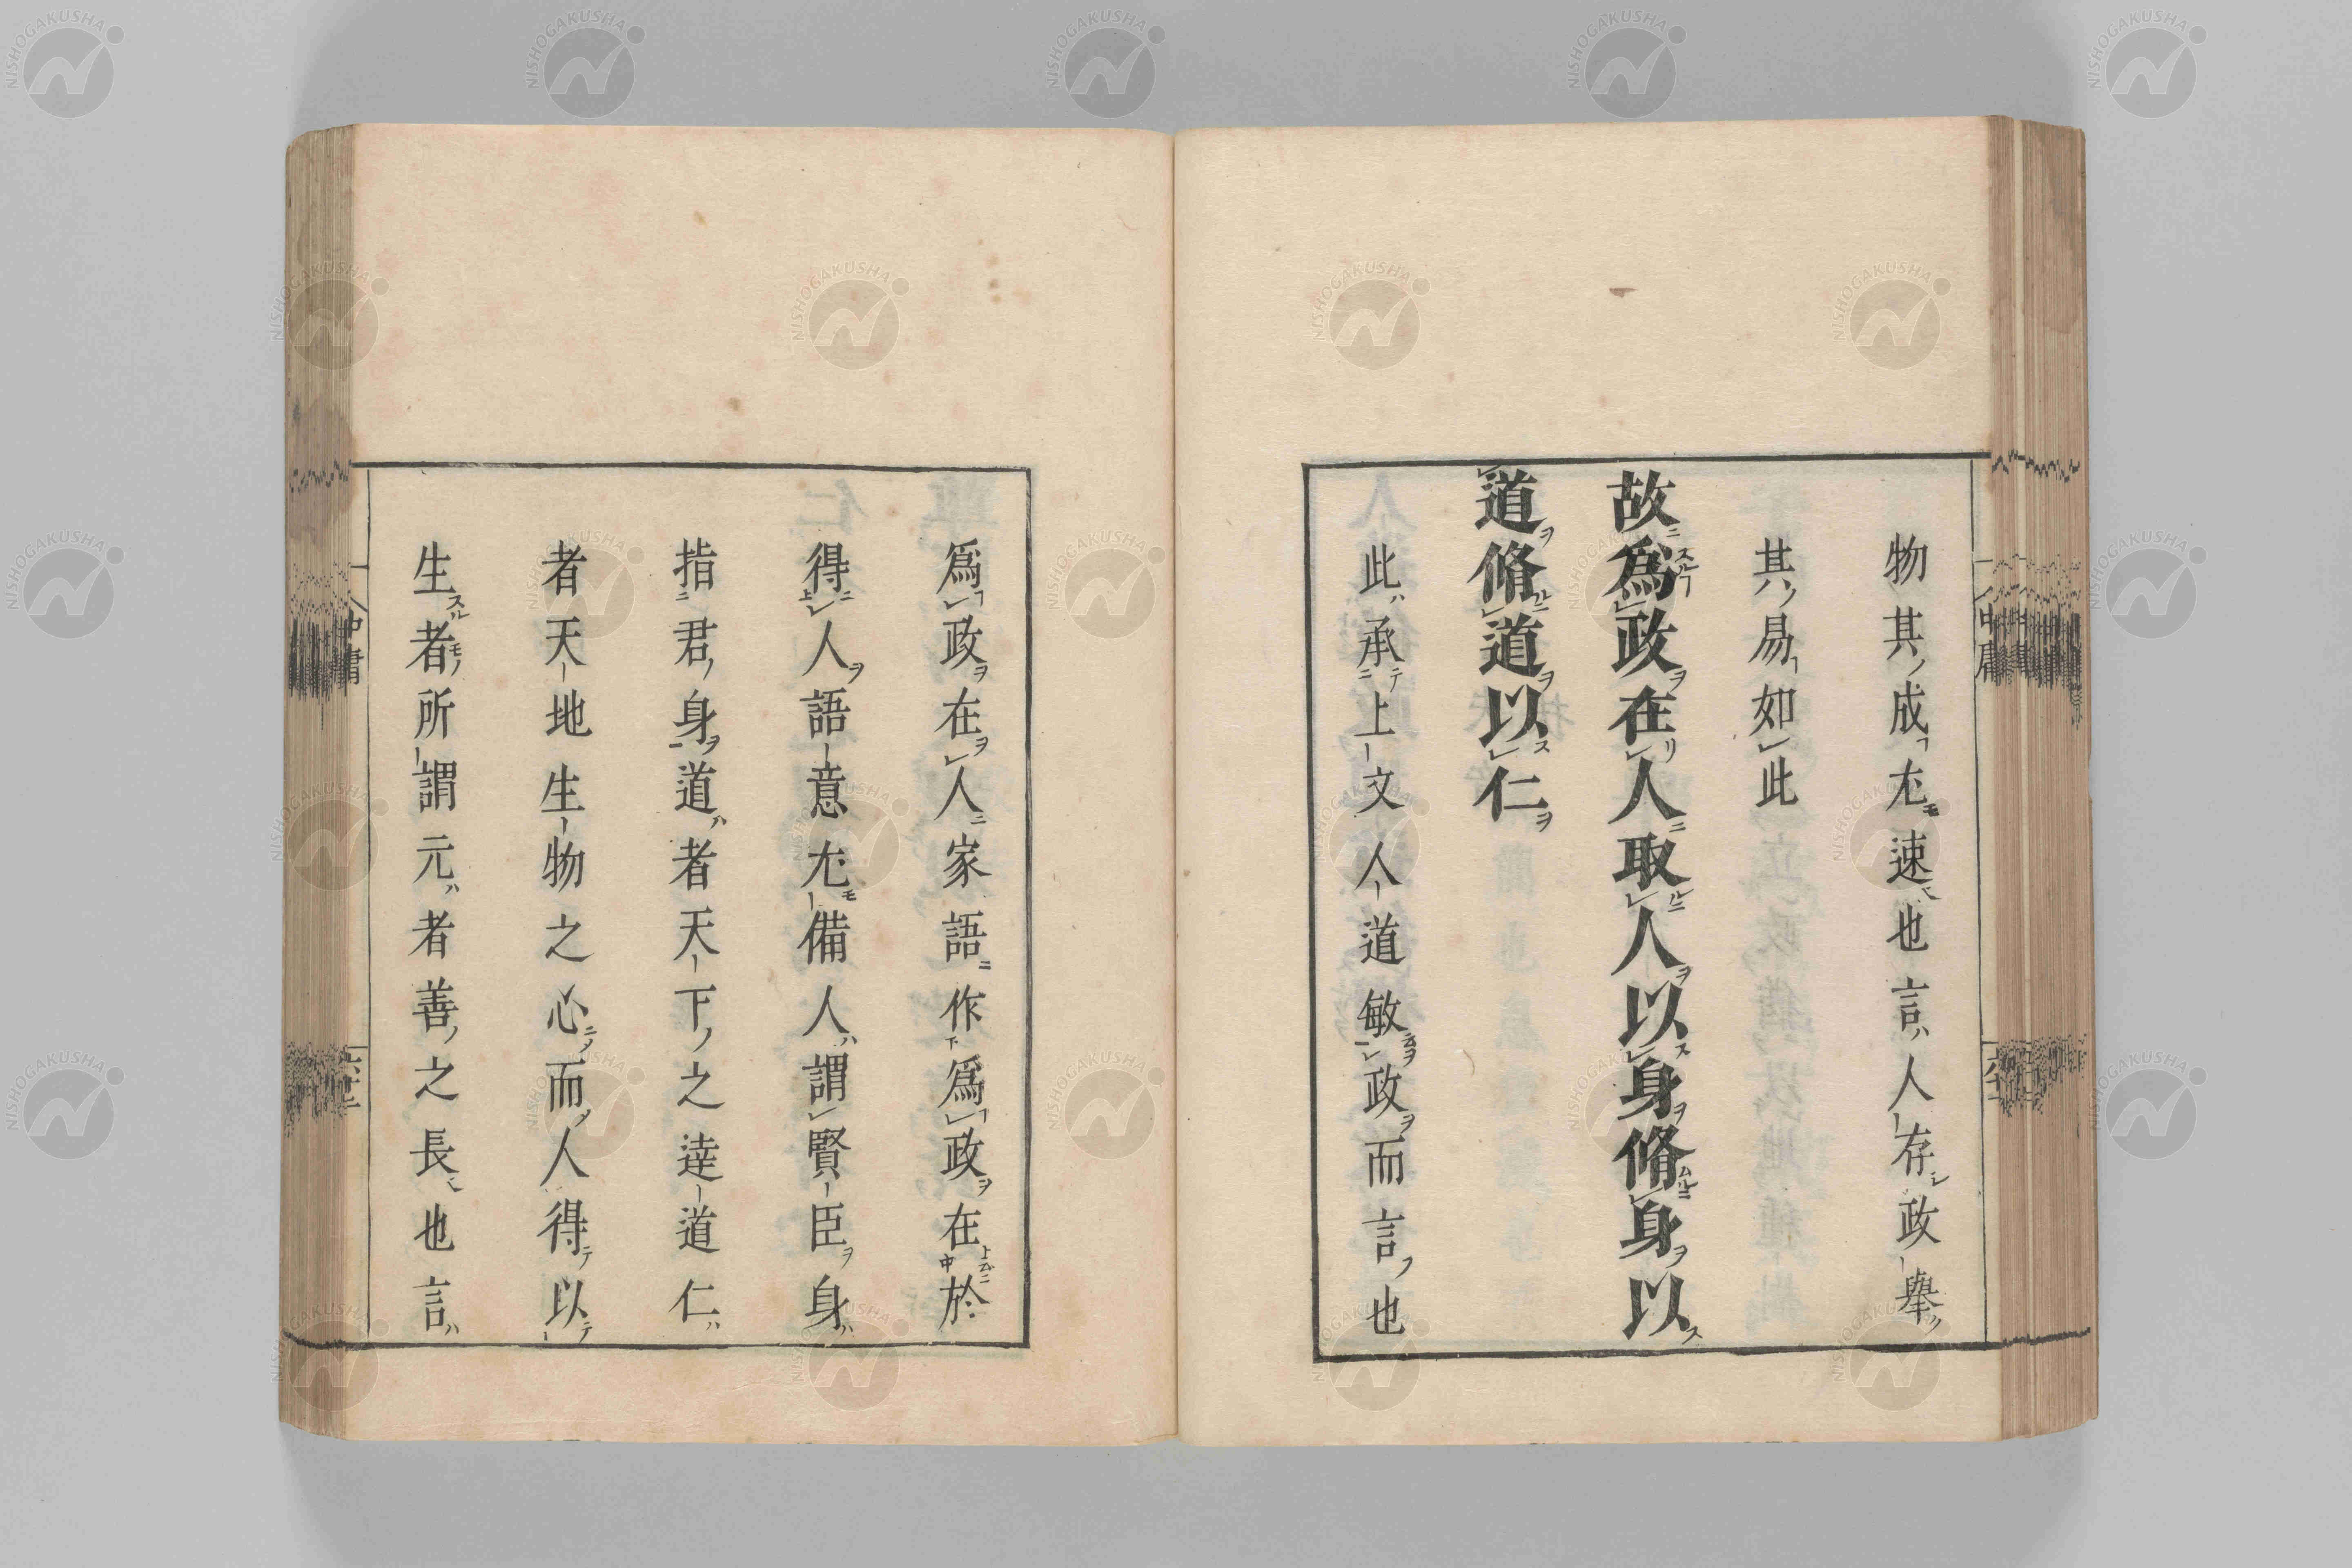 物其成尤速也言人存政舉
其易如此
故爲政在人取人以身脩身以
道脩道以仁
此承上文人道敏政而言也
爲政在人家語作爲政在於
得人語意尤備人謂賢臣身
指君身道者天下之達道仁
者天地生物之心而人得以
生者所謂元者善之長也言
中庸